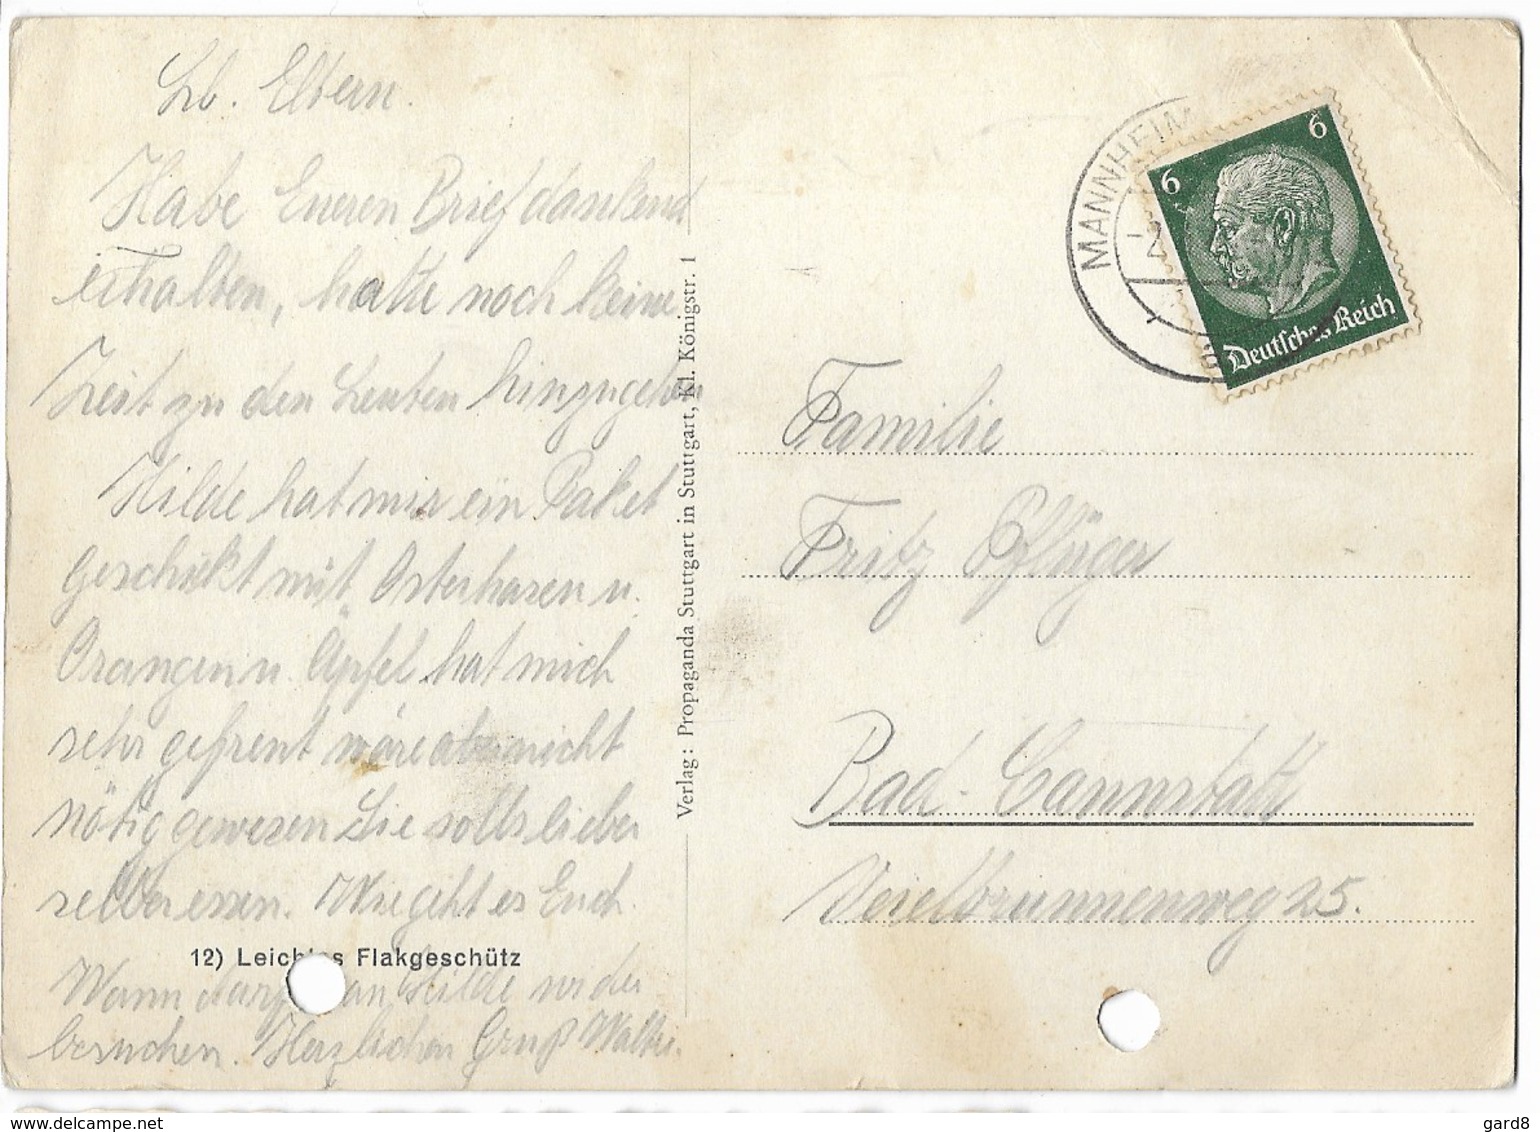 Lb. Eltern.
Habe Eueren Brief dankend
erhalten, hatte noch keine
Zeit zu den Leuten hinzugehen
Hilde hat mir ein Paket
geschickt mit Osterhasen u.
Orangen u. Äpfel hat mich
sehr gefreut wäre aber nicht
nötig gewesen Sie solls lieber
selber essen. Wie geht es Euch.
12) Leichtes Flakgeschütz
Wann darf man Hilde wieder
besuchen. Herzlichen Gruß Walter.
Verlag: Propaganda Stuttgart in Stuttgart, Kl. Königstr. 1
MANNHEIM
-2
6
6
Deutsches Reich
Familie
Fritz Pflüger
Bad-Cannstatt
Veielbrunnenweg 25.
www.delcampe.net
gard8